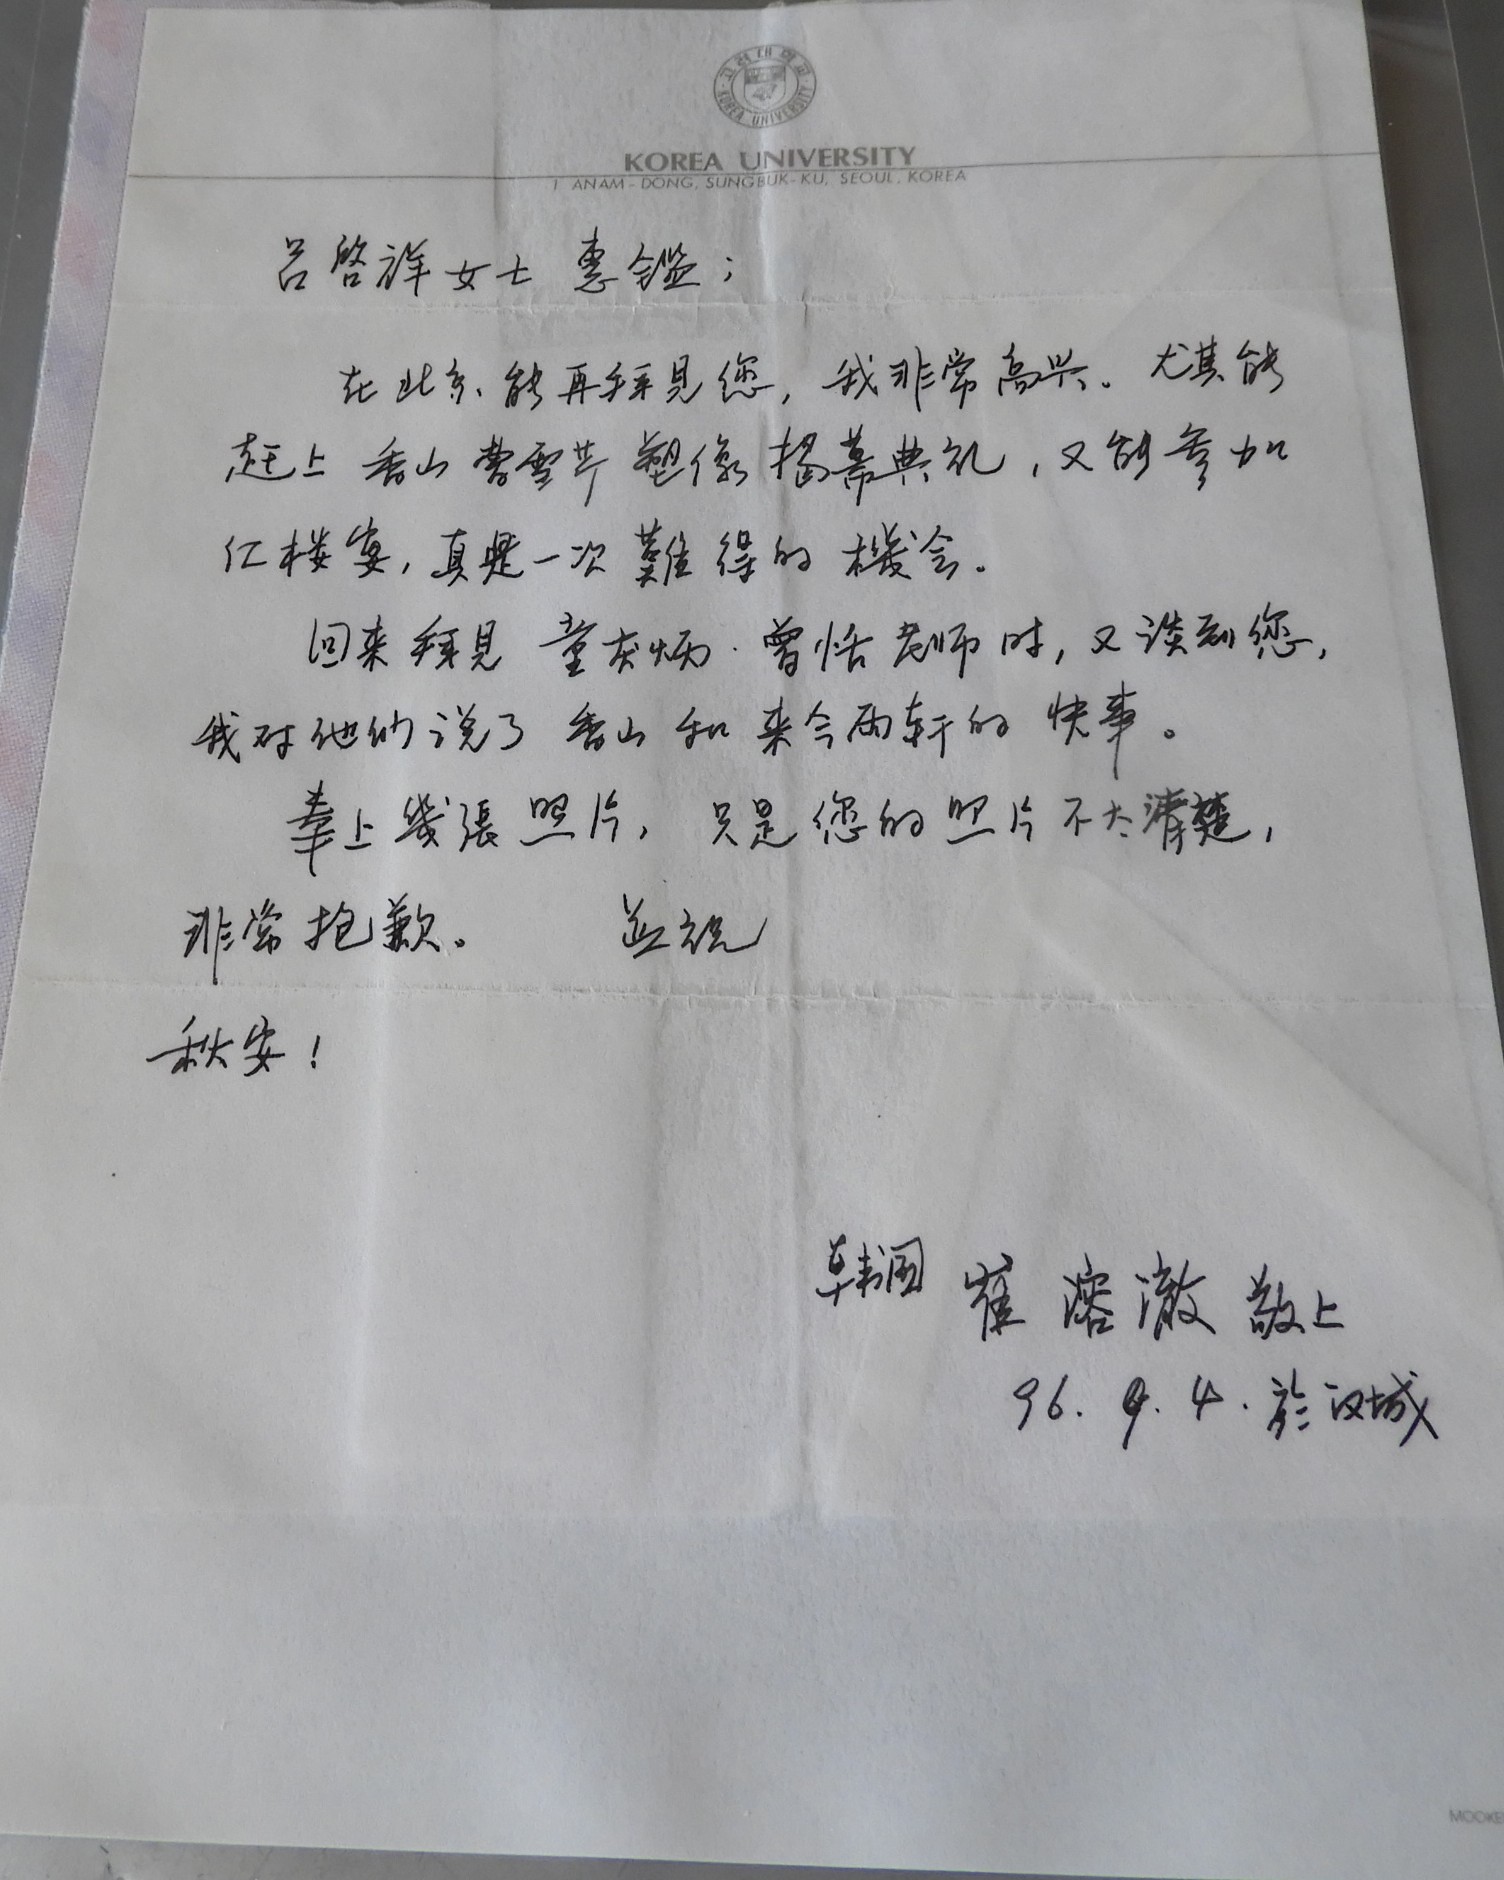 고려대학교
KOREA UNIVERSITY
KOREA UNIVERSITY
1 ANAM-DONG, SUNGBUK-KU, SEOUL, KOREA
吕啓祥女士 惠鑑；
在北京能再拜見您，我非常高兴。尤其能
赶上 香山曹雪芹塑像揭幕典礼，又能参加
红楼宴，真是一次難得的機会。
回来拜見 童庆炳·曾恬老师时，又談到您，
我对他们说了 香山和来今雨轩的 快事。
奉上幾張照片，只是您的照片不太清楚，
非常抱歉。 並祝
秋安！
韩国 崔溶澈 敬上
96. 9. 4. 於汉城
MOOKE